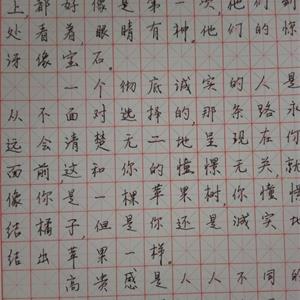 上,都好像是第一次,他们到
处看着眼睛有神。他们的你
讶像宝石。
一个彻底诚实的人是
从不面对选择的,那条路永
远会清楚无二地呈现在你
面前,这和你的憧憬无关,就
像你是一棵苹果树,你憧憬
结橘子,但是你还是诚实地
结出苹果一样。
高贵感是人人不同的